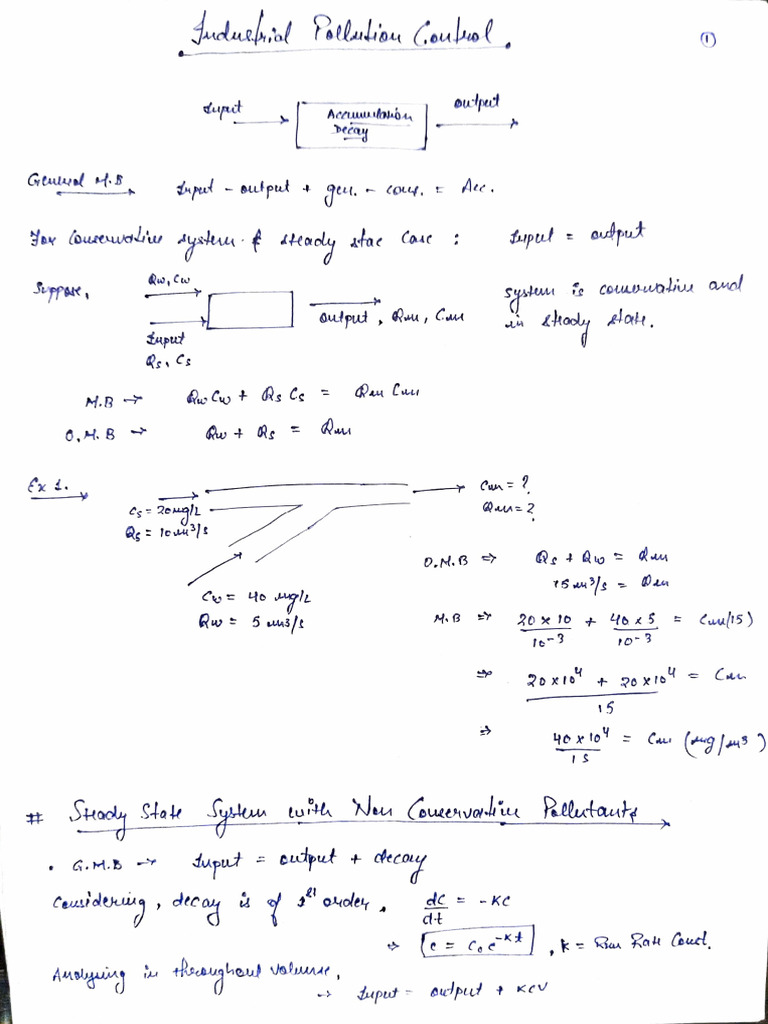 Industrial Pollution Control.
1
Input
Accumulation
Decay
output
General M.B Input - output + gen. - cons. = Acc.
For Conservative system & steady stae case : Input = output
Suppose,
Qw, Cw
Input
Qs, Cs
output, Qm, Cm
system is conservative and
in steady state.
M.B → QwCw + QsCs = Qm Cm
O.M.B → Qw + Qs = Qm
Ex 1.
Cs = 20mg/L
Qs = 10m3/s
Cw = 40 mg/L
Qw = 5 m3/s
Cm = ?
Qm = ?
O.M.B ⇒ Qs + Qw = Qm
15m3/s = Qm
M.B ⇒ 20 x 10 / 10-3 + 40 x 5 / 10-3 = Cm(15)
⇒ 20x10^4 + 20x10^4 / 15 = Cm
⇒ 40 x 10^4 / 15 = Cm (mg/m3)
# Steady State System with Non Conservative Pollutants
. G.M.B → Input = output + decay
Considering, decay is of 1st order. dc/dt = -KC
⇒ C = C0 e^-Kt , K = Rxn Rate Const.
Analysing in throughout volume,
→ Input = output + KCV